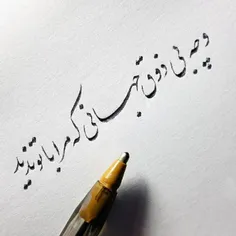 وچه بی ذوق جهانی که مرا با تو ندید